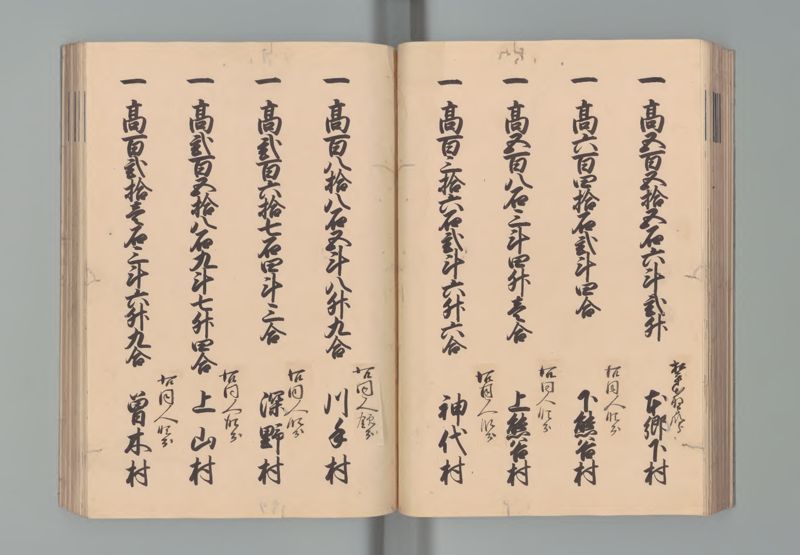 一高五百五拾五石六斗弐升
本郷下村
一高六百四拾石弐斗四合
右同人領分
下熊谷村
一高五百八石三斗四升壱合
右同人領分
上熊谷村
一高百三拾六石弐斗六升六合
右同人領分
神代村
一高百八拾八石五斗八升九合
右同人領分
川手村
一高弐百六拾七石四斗三合
右同人領分
深野村
一高弐百五拾八石九斗七升四合
右同人領分
上山村
一高百弐拾壱石三斗六升九合
右同人領分
曽木村